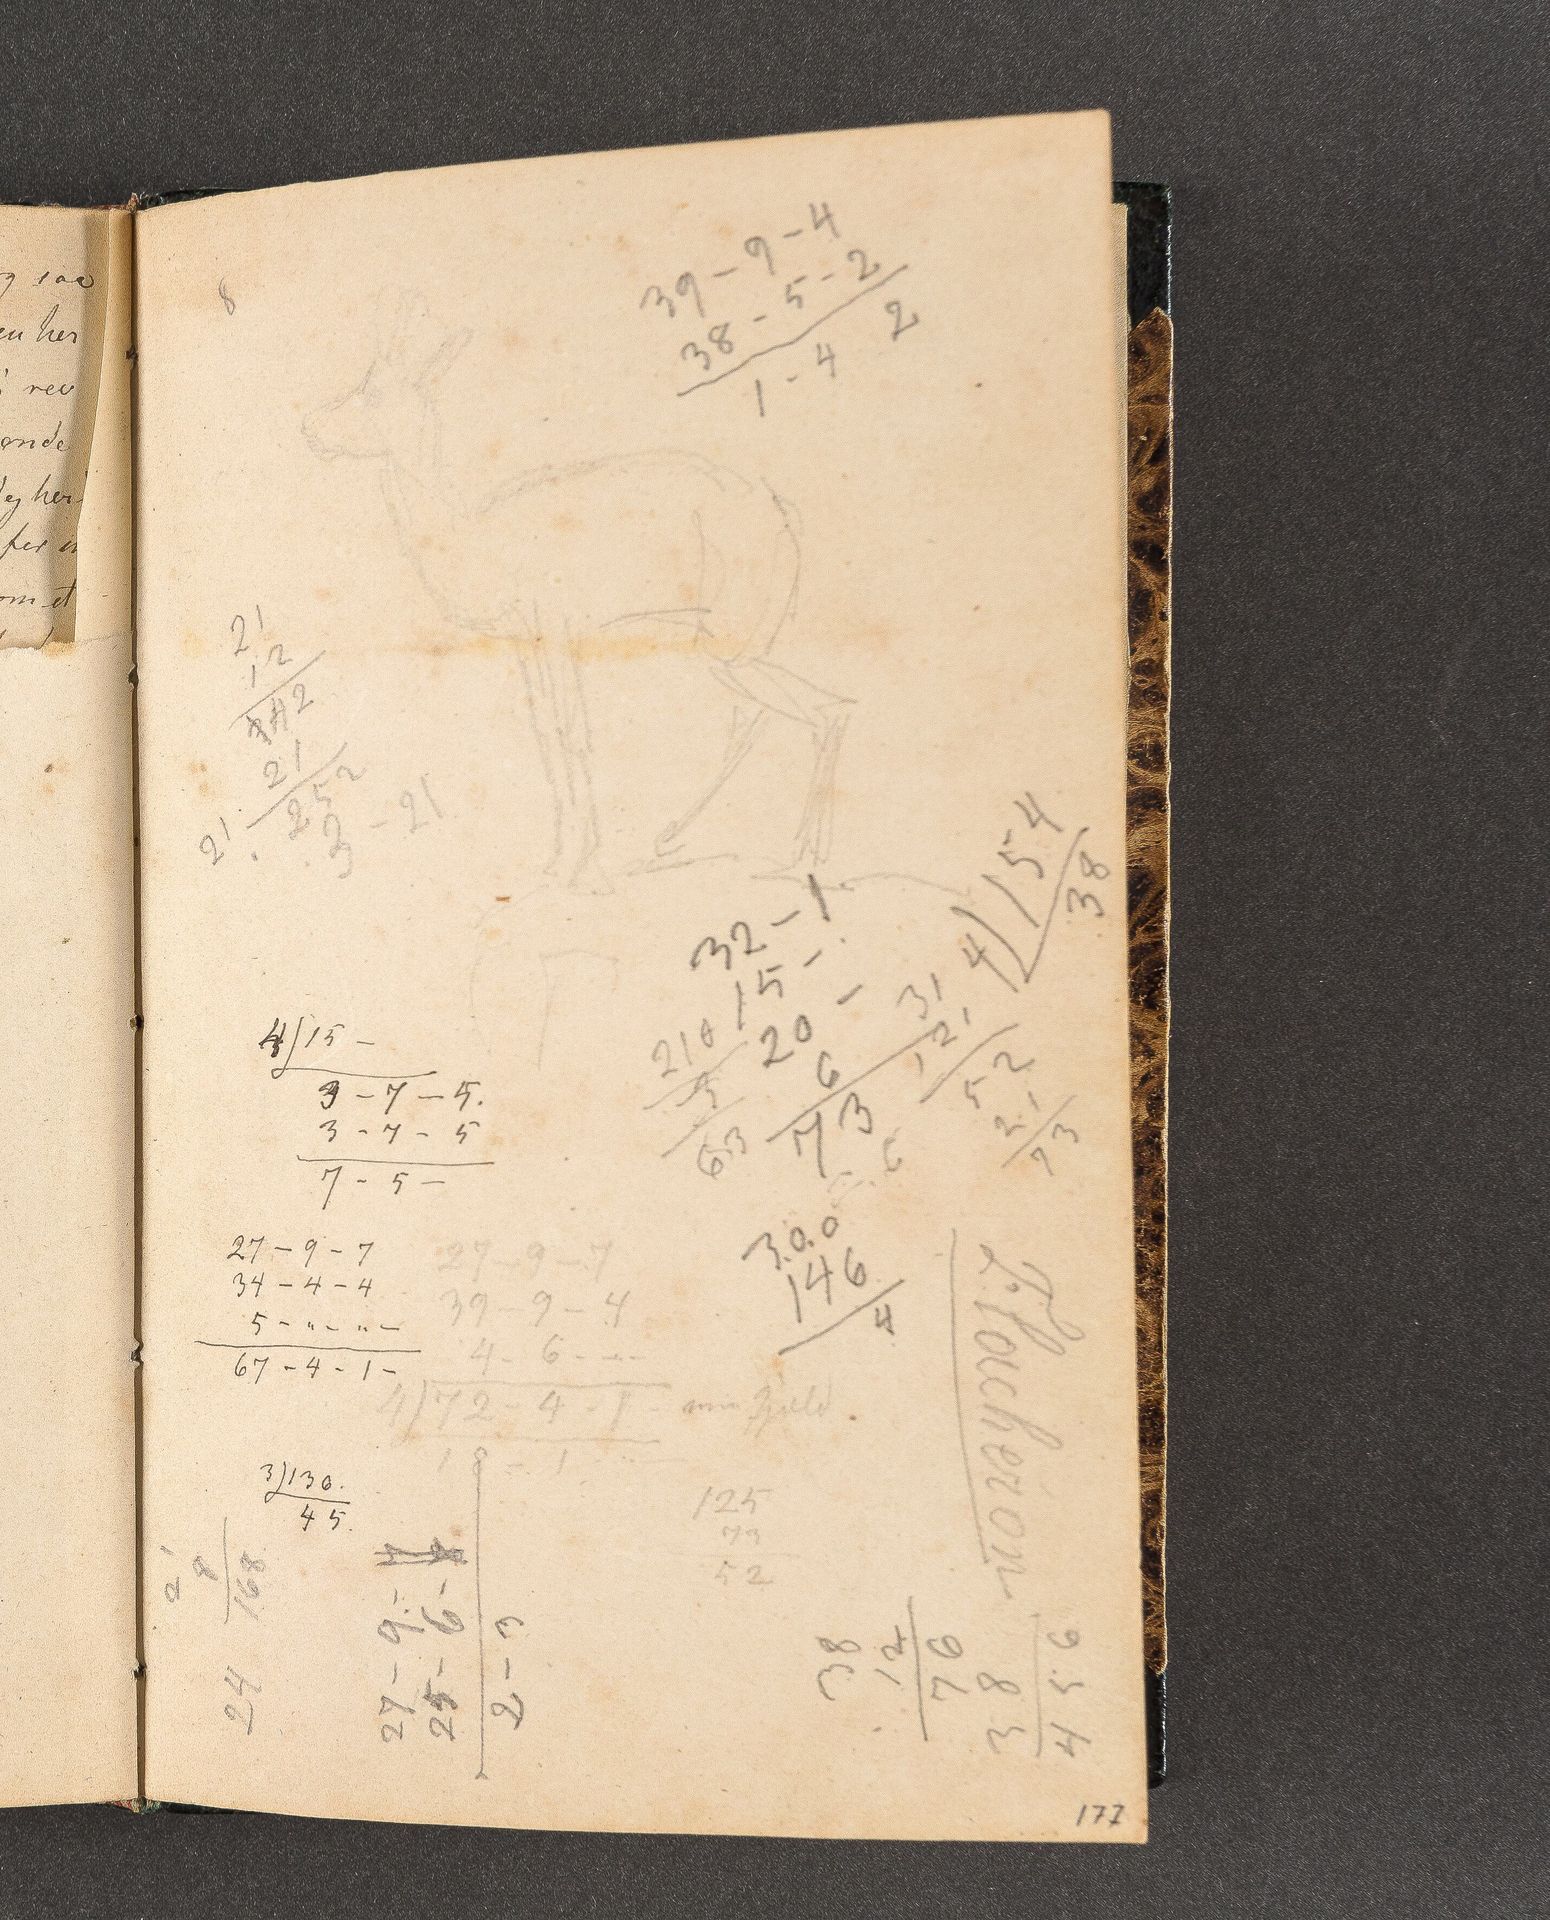 g saa
en her
rev
ande
eg her
for
om et
8
39 - 9 - 4
38 - 5 - 2
1 - 4 2
21
12
42
21
252
21
3 - 21
4)154
38
32 - 1
15 -
20 -
6
73
210
63
31
21
52
21
73
6
4)15 -
3 - 7 - 5.
3 - 7 - 5
7 - 5 -
300
146
4
27 - 9 - 7
34 - 4 - 4
5 - " - " -
67 - 4 - 1 -
27 - 9 - 7
39 - 9 - 4
4 - 6 - -
4)72 - 4 - 1 - min Gjeld
18 - 1 -
3)136.
45.
125
73
52
21
8
168
24
27 - 9 -
25 - 6 -
2 - 3
38
12
76
38
456
177